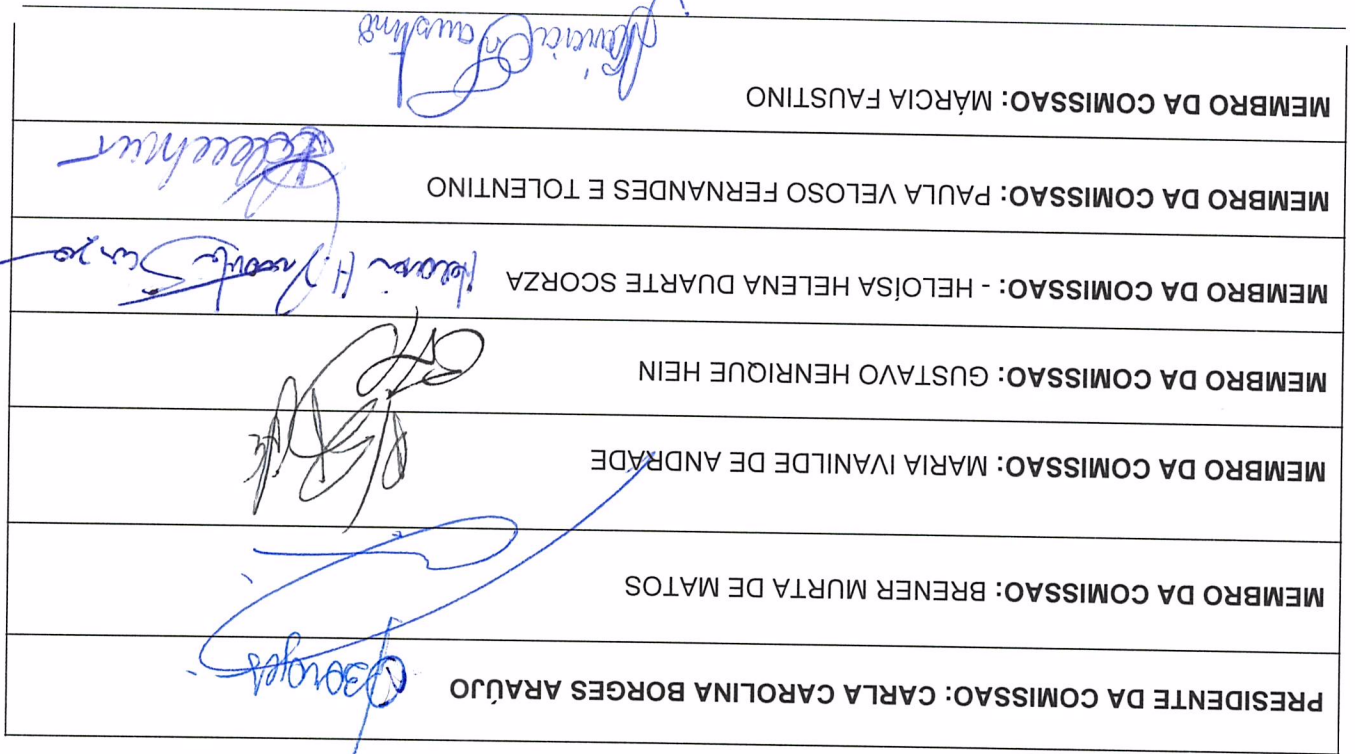 PRESIDENTE DA COMISSAO: CARLA CAROLINA BORGES ARAÚJO
MEMBRO DA COMISSAO: BRENER MURTA DE MATOS
MEMBRO DA COMISSAO: MARIA IVANILDE DE ANDRADE
MEMBRO DA COMISSAO: GUSTAVO HENRIQUE HEIN
MEMBRO DA COMISSAO: - HELOÍSA HELENA DUARTE SCORZA
MEMBRO DA COMISSAO: PAULA VELOSO FERNANDES E TOLENTINO
MEMBRO DA COMISSAO: MÁRCIA FAUSTINO